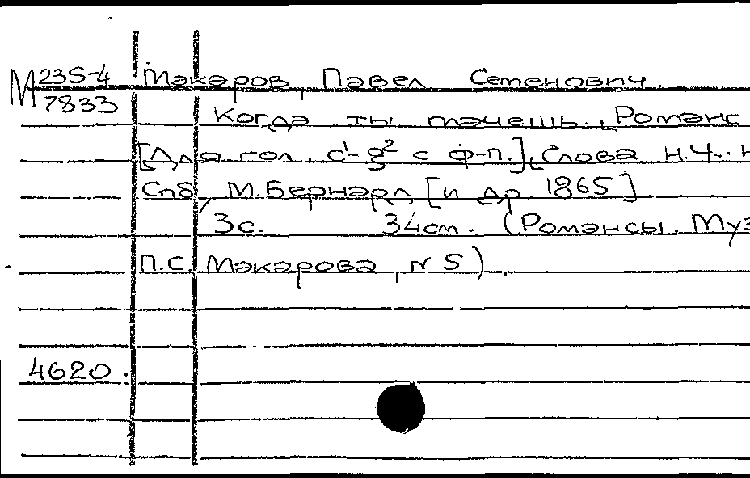 М 235-4 Макаров, Павел Семенович
7833 Когда ты плачешь.. Романс
[Для гол. c¹-g² с ф-п.], Слова Н.Ч.:
Спб, М. Бернард [и др. 1865]
3с. 34см. (Романсы. Муз
П.С. Макарова, N 5).
4620.